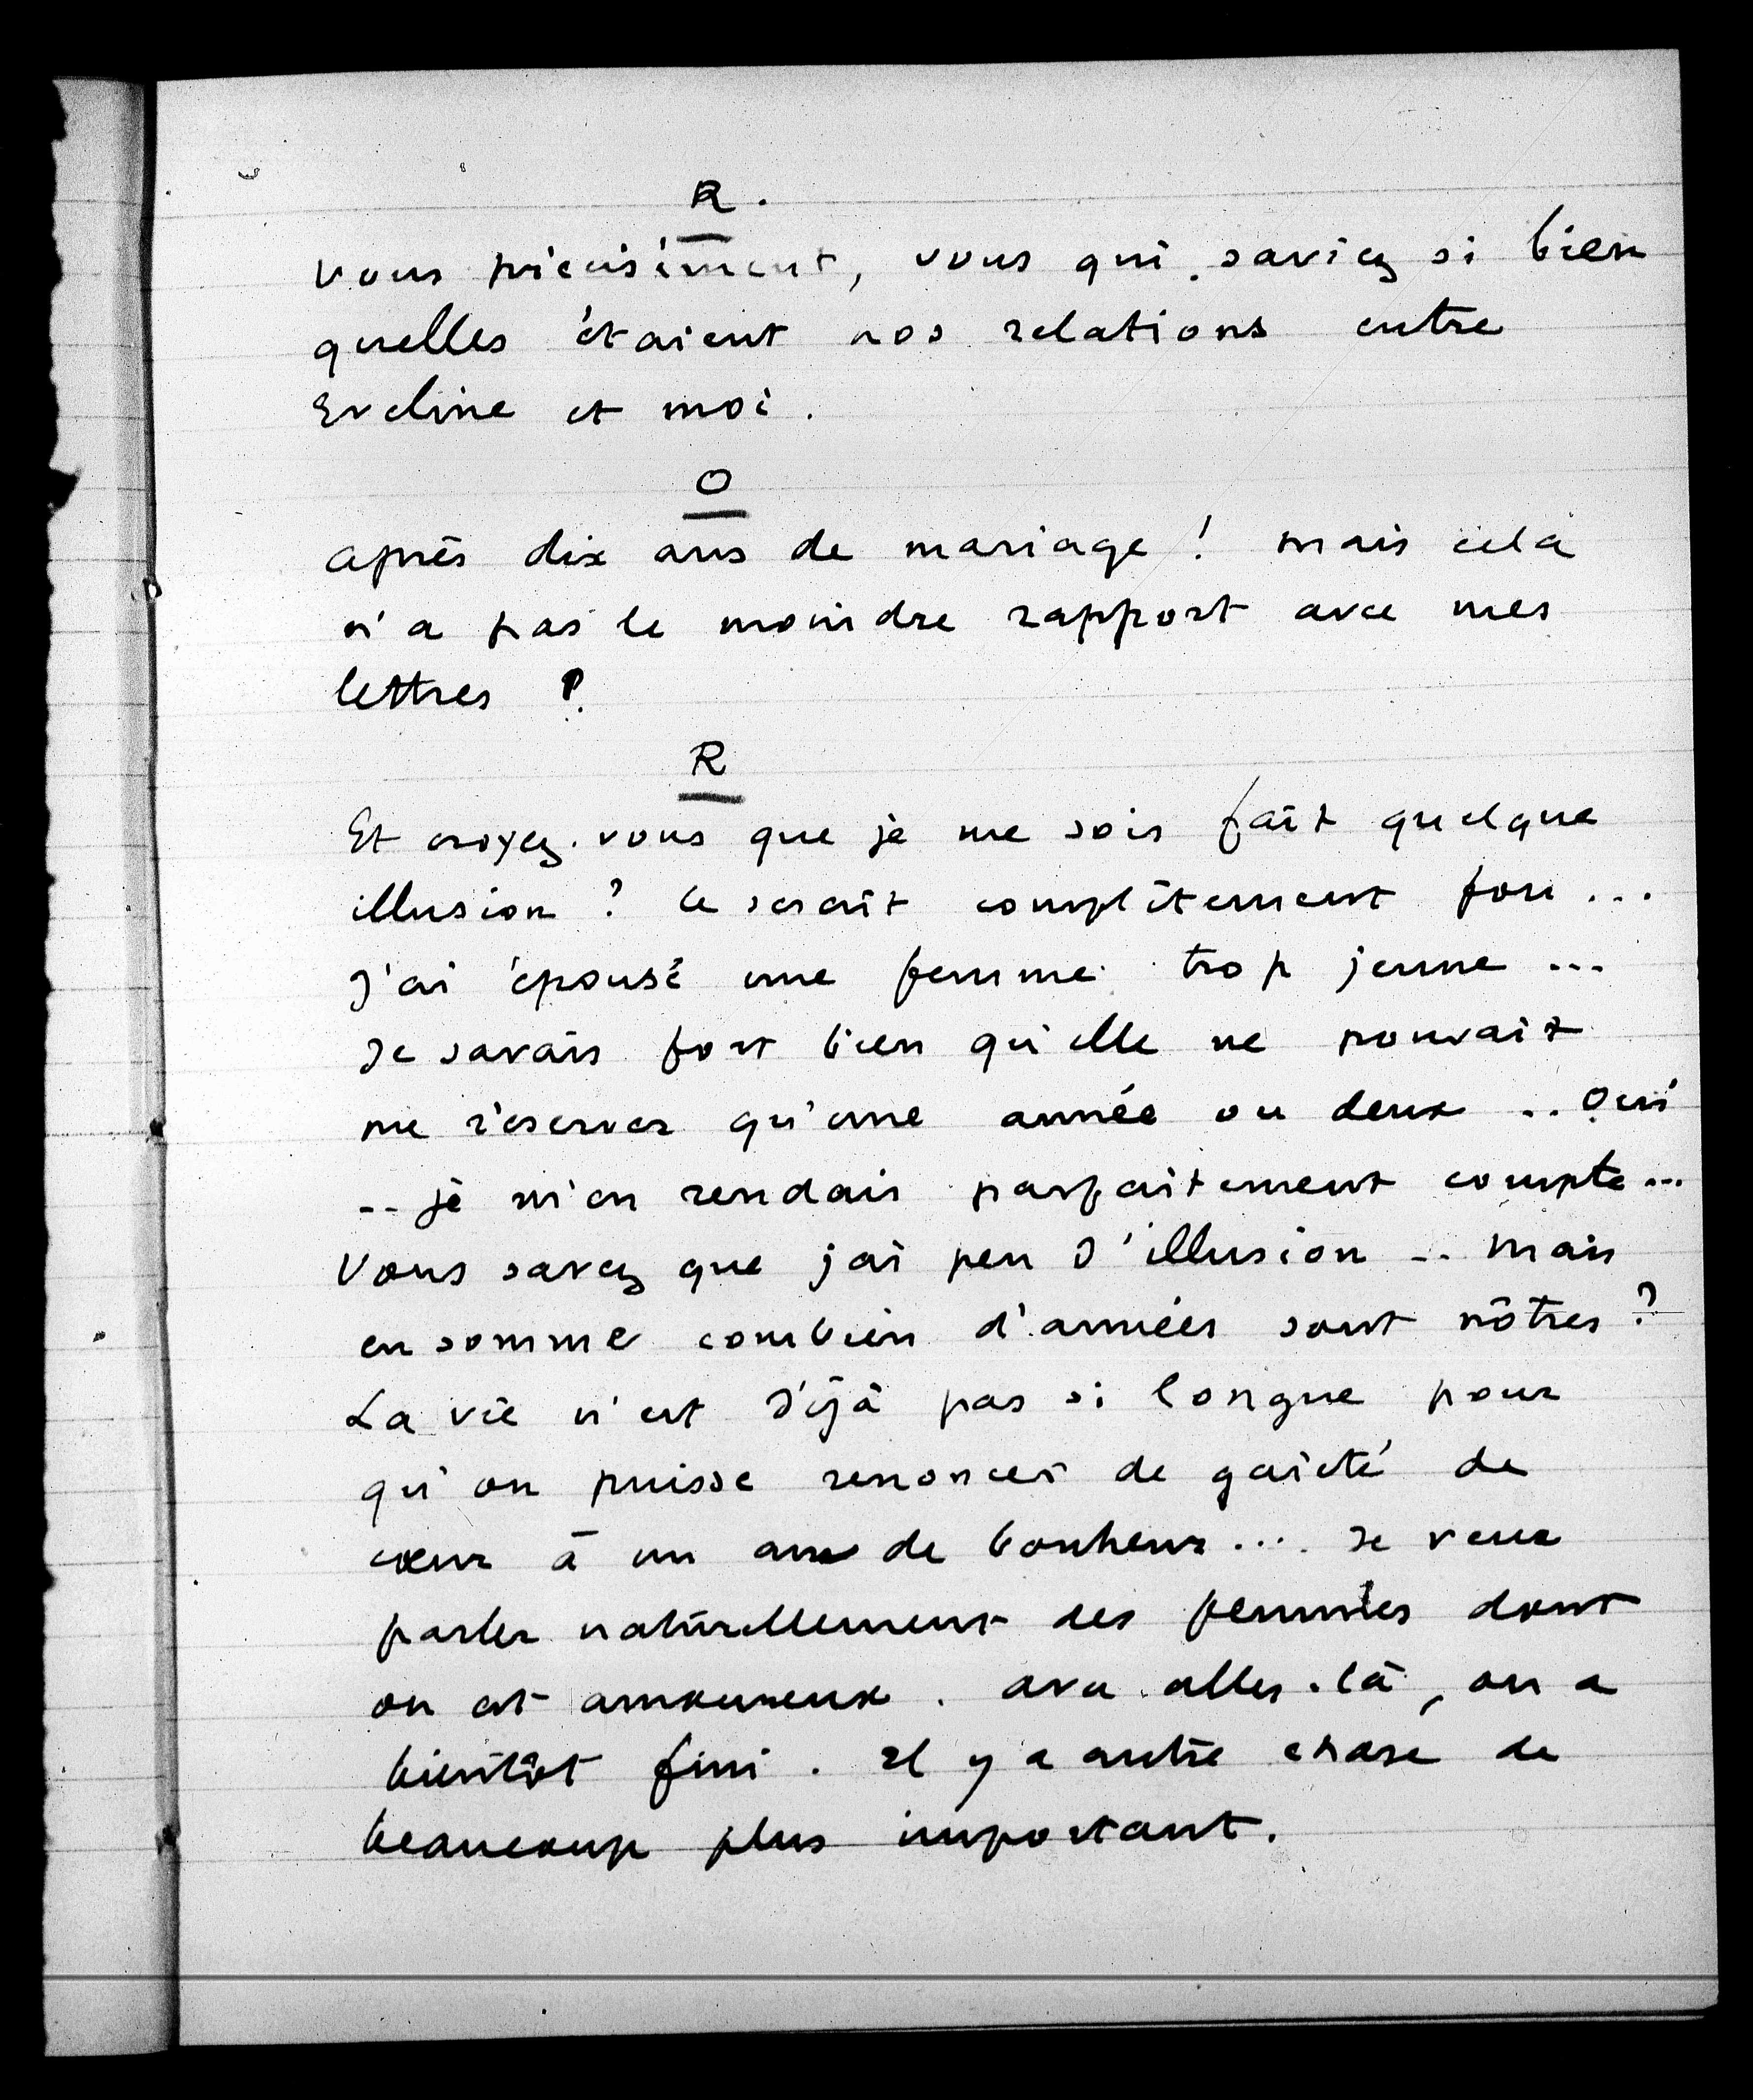 R.
Vous précisément, vous qui saviez si bien
quelles étaient nos relations entre
Eveline et moi.
O
après dix ans de mariage ! mais cela
n'a pas le moindre rapport avec mes
lettres ?
R
Et croyez-vous que je me sois fait quelque
illusion ? Ce serait complètement fou ...
J'ai épousé une femme trop jeune ...
Je savais fort bien qu'elle ne pouvait
me réserver qu'une année ou deux ... Oui
-- je m'en rendais parfaitement compte ...
Vous savez que j'ai peu d'illusion ... mais
en somme combien d'années sont nôtres ?
La vie n'est déjà pas si longue pour
qu'on puisse renoncer de gaieté de
cœur à un an de bonheur.... Je veux
parler naturellement des femmes dont
on est amoureux. avec elles-là, on a
bientôt fini. Il y a autre chose de
beaucoup plus important.